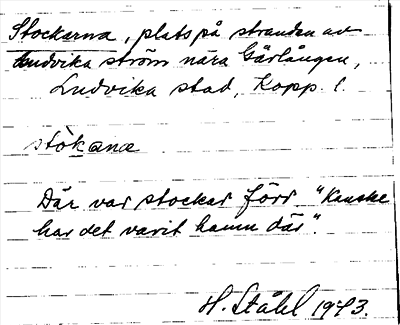 Stockarna, plats på stranden av
Ludvika ström nära Gårlången,
Ludvika stad, Kopp. l.
stòkana
Där var stockar förr. "Kanske
har det varit hamn där".
H. Ståhl 1943.